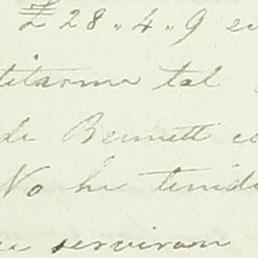 £ 28 " 4 " 9 en
titarme tal
de Bennett co
No he tenido
se serviran